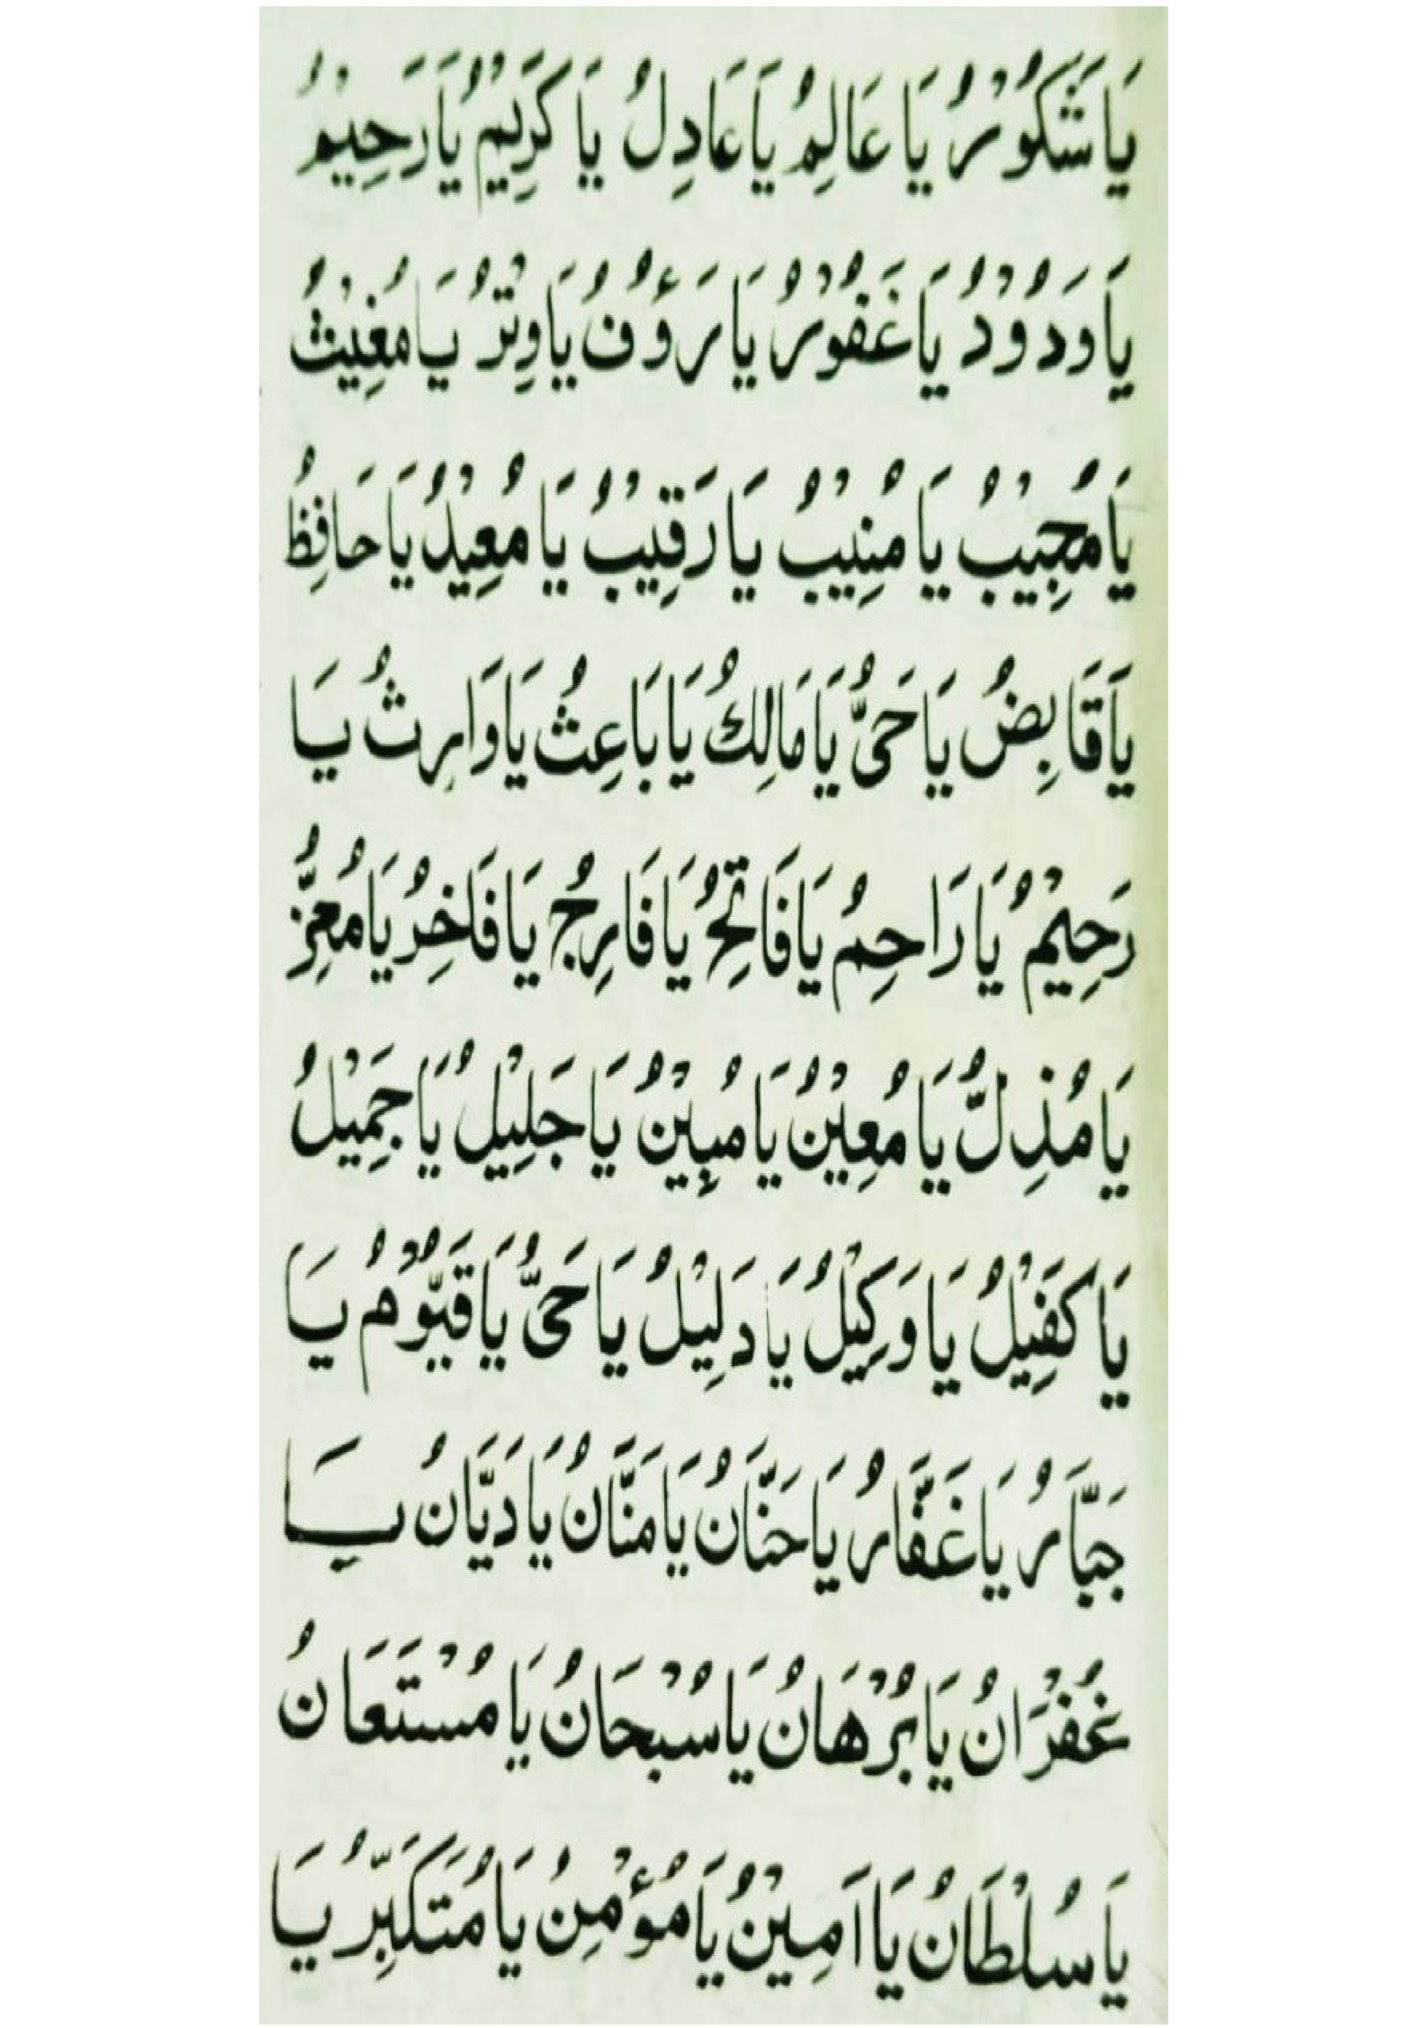 يَا شَكُوْرُ يَا عَالِمُ يَا عَادِلُ يَا كَرِيْمُ يَا رَحِيْمُ
يَا وَدُوْدُ يَا غَفُوْرُ يَا رَؤُفُ يَا وِتْرُ يَا مُغِيْثُ
يَا مُجِيْبُ يَا مُنِيْبُ يَا رَقِيْبُ يَا مُعِيْدُ يَا حَافِظُ
يَا قَابِضُ يَا حَيُّ يَا مَالِكُ يَا بَاعِثُ يَا وَارِثُ يَا
رَحِيْمُ يَا رَاحِمُ يَا فَاتِحُ يَا فَارِجُ يَا فَاخِرُ يَا مُعِزُّ
يَا مُذِلُّ يَا مُعِيْنُ يَا مُبِيْنُ يَا جَلِيْلُ يَا جَمِيْلُ
يَا كَفِيْلُ يَا وَكِيْلُ يَا دَلِيْلُ يَا حَيُّ يَا قَيُّوْمُ يَا
جَبَّارُ يَا غَفَّارُ يَا حَنَّانُ يَا مَنَّانُ يَا دَيَّانُ يَا
غُفْرَانُ يَا بُرْهَانُ يَا سُبْحَانُ يَا مُسْتَعَانُ
يَا سُلْطَانُ يَا اَمِيْنُ يَا مُؤْمِنُ يَا مُتَكَبِّرُ يَا